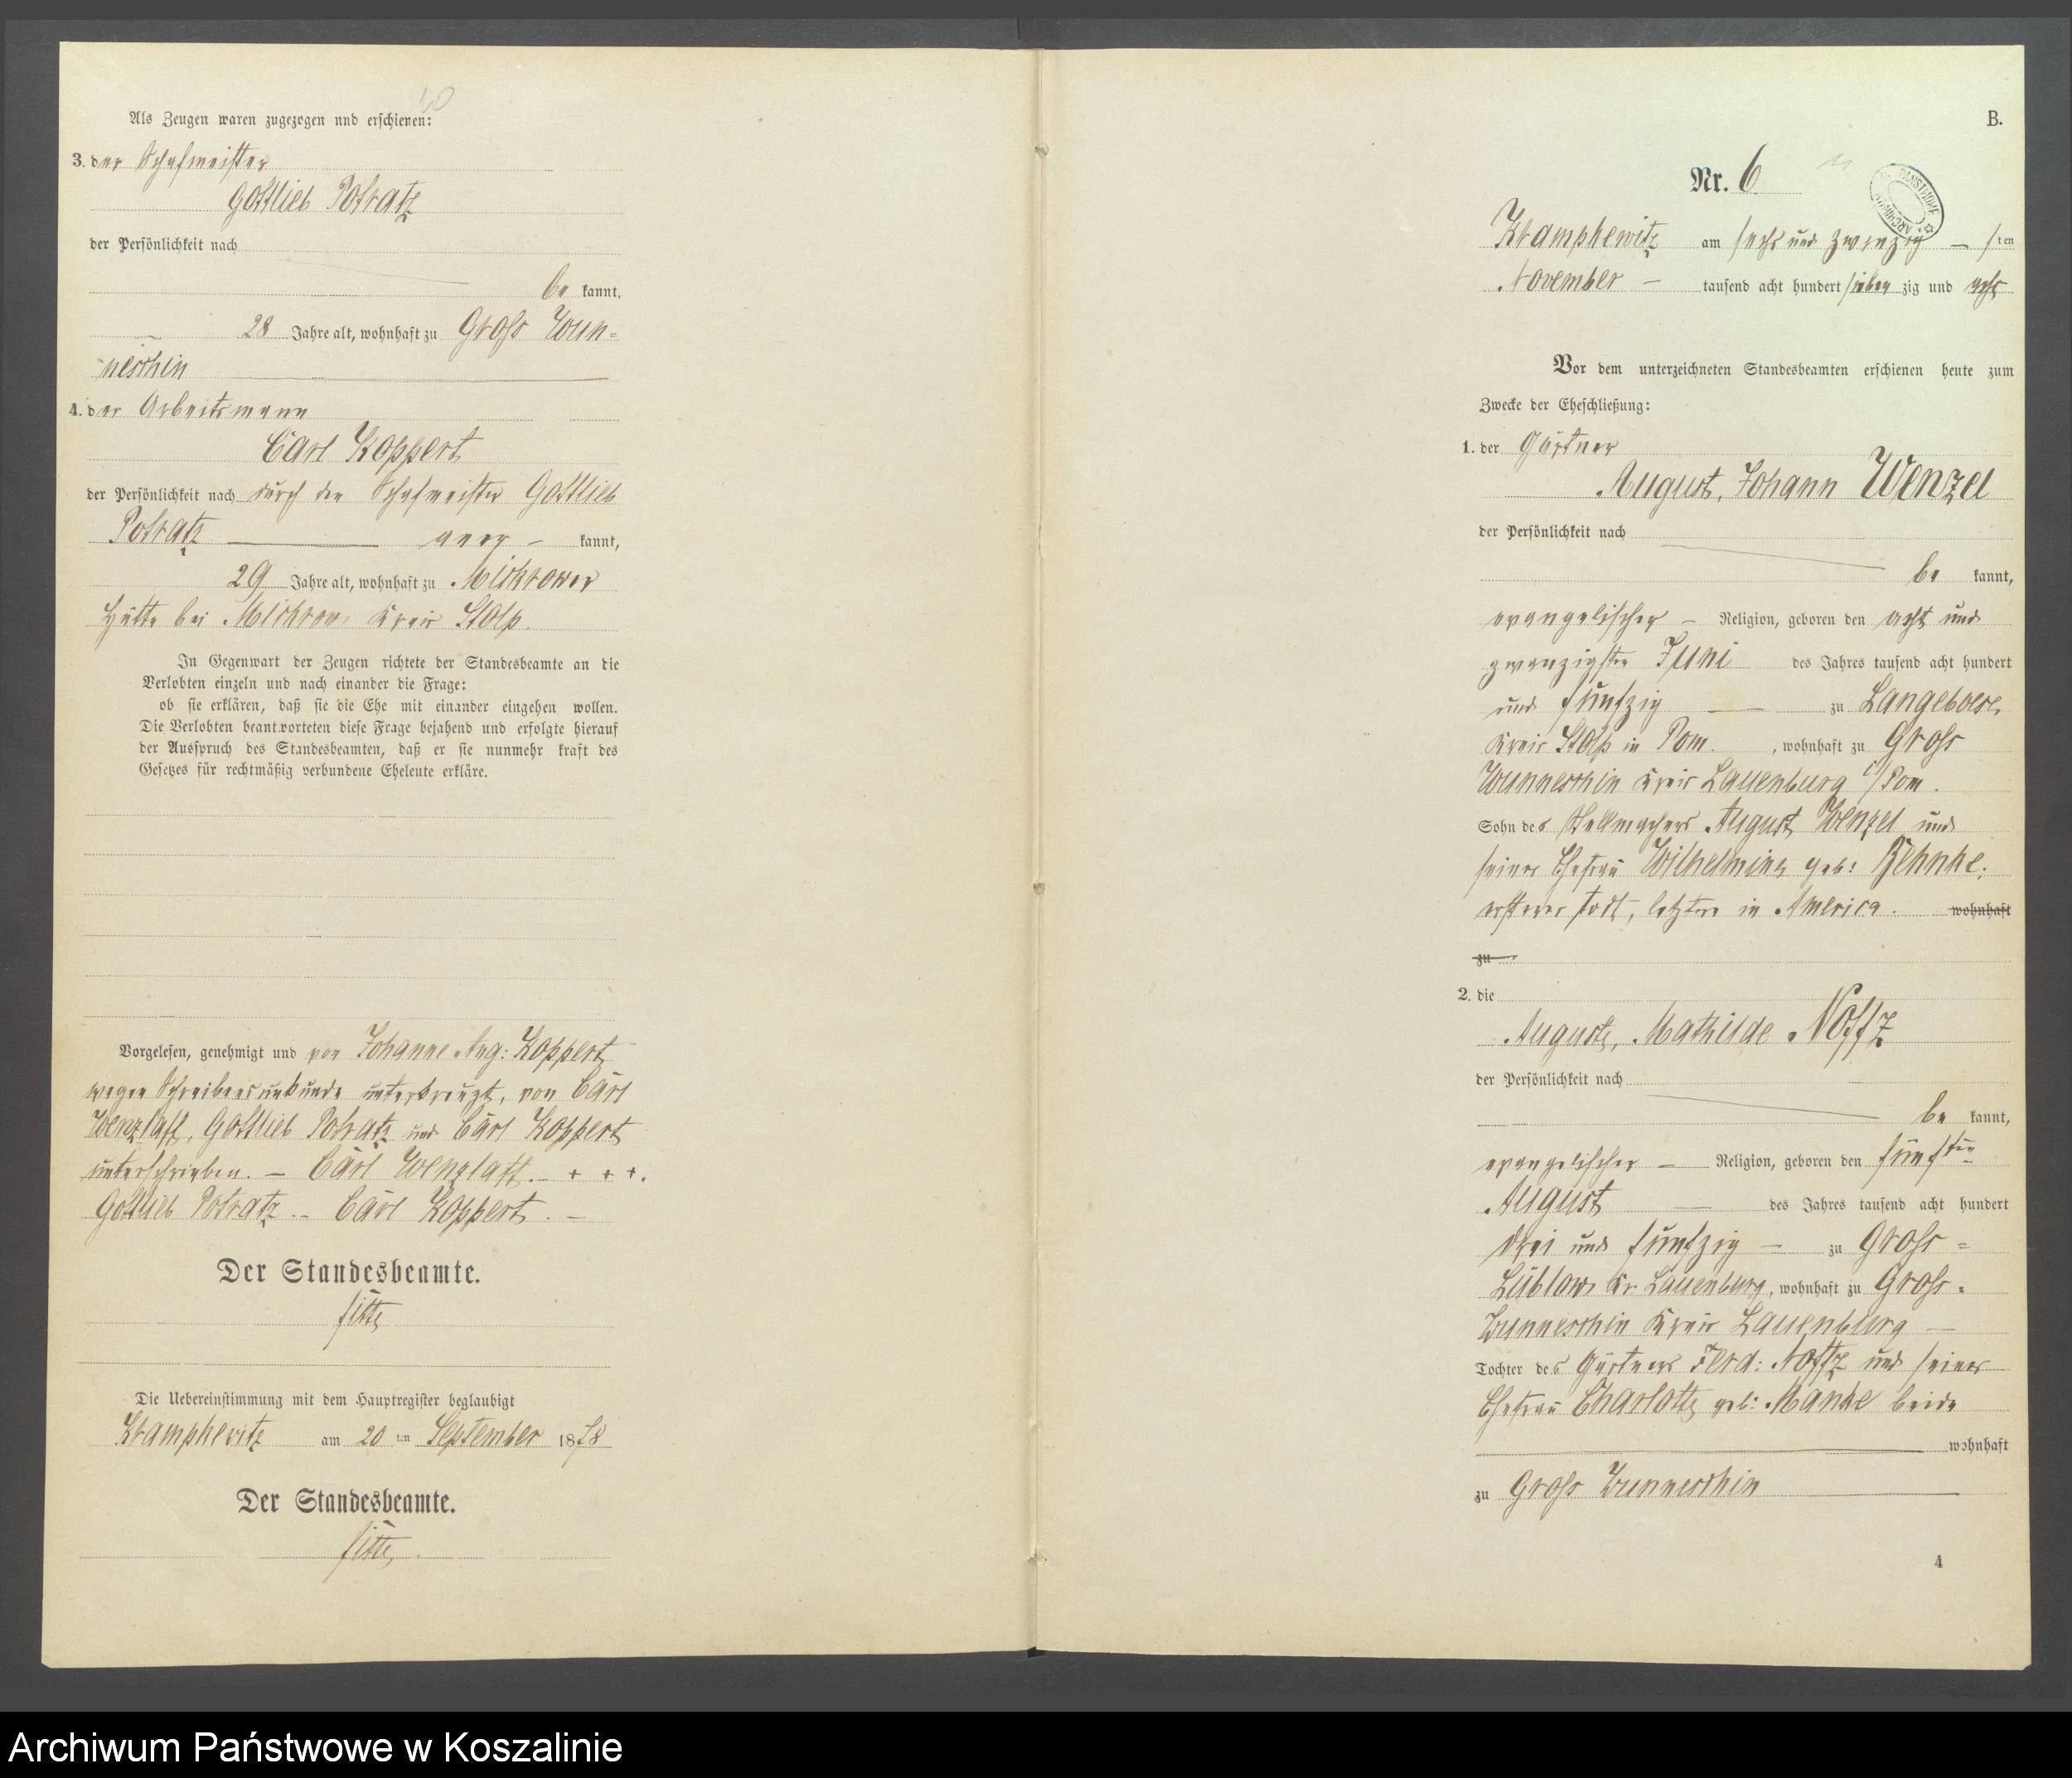 Als Zeugen waren zugezogen und erschienen:
3. der Schafmeister
Gottlieb Potratz
der Persönlichkeit nach
be kannt,
28 Jahre alt, wohnhaft zu Gross Wun=
neschin
4. der Arbeitsmann
Carl Koppert
der Persönlichkeit nach durch den Schafmeister Gottlieb
Potratz — aner – kannt,
29 Jahre alt, wohnhaft zu Mickrower
Hütte bei Mickrow, Kreis Stolp.
In Gegenwart der Zeugen richtete der Standesbeamte an die
Verlobten einzeln und nach einander die Frage:
ob sie erklären, daß sie die Ehe mit einander eingehen wollen.
Die Verlobten beantworteten diese Frage bejahend und erfolgte hierauf
der Ausspruch des Standesbeamten, daß er sie nunmehr kraft des
Gesetzes für rechtmäßig verbundene Eheleute erkläre.
Vorgelesen, genehmigt und von Johanne Aug: Koppert
wegen Schreibensunkunde unterkreuzt, von Carl
Wenzlaff, Gottlieb Potratz und Carl Koppert
unterschrieben. – Carl Wenzlaff. – + + +.
Gottlieb Potratz. – Carl Koppert. –
Der Standesbeamte.
Die Uebereinstimmung mit dem Hauptregister beglaubigt
Kramphewitz am 20 ten September 1878
Der Standesbeamte.
B.
Nr. 6
Kramphewitz am sechs und zwanzig – sten
November – tausend acht hundert sieben zig und acht
Vor dem unterzeichneten Standesbeamten erschienen heute zum
Zwecke der Eheschließung:
1. der Gärtner
August, Johann Wenzel
der Persönlichkeit nach
be kannt,
evangelischer – Religion, geboren den acht und
zwanzigsten Juni des Jahres tausend acht hundert
und fünfzig — zu Langeboese,
Kreis Stolp in Pom. , wohnhaft zu Gross
Wunneschin Kreis Lauenburg i/Pom.
Sohn des Stellmachers August Wenzel und
seiner Ehefrau Wilhelmine geb: Behnke,
ersterer todt, letztere in America. wohnhaft
zu
2. die
Auguste, Mathilde Noffz
der Persönlichkeit nach
be kannt,
evangelischer – Religion, geboren den fünften
August — des Jahres tausend acht hundert
drei und fünfzig – zu Gross =
Lüblow, Kr. Lauenburg, wohnhaft zu Gross =
Wunneschin Kreis Lauenburg –
Tochter des Gärtners Ferd: Noffz und seiner
Ehefrau Charlotte geb: Manke beide
wohnhaft
zu Gross Wunneschin
4
Archiwum Państwowe w Koszalinie